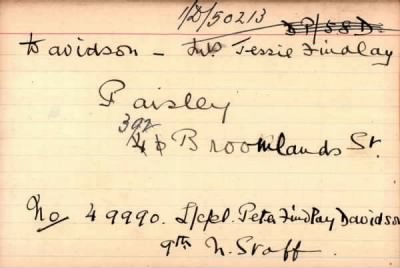 1/D/50213
DP/58D.
Davidson – Mrs Jessie Findlay
Paisley
392
Broomlands St.
No 49990. L/cpl. Peter Findlay Davidson
9th N. Staff.